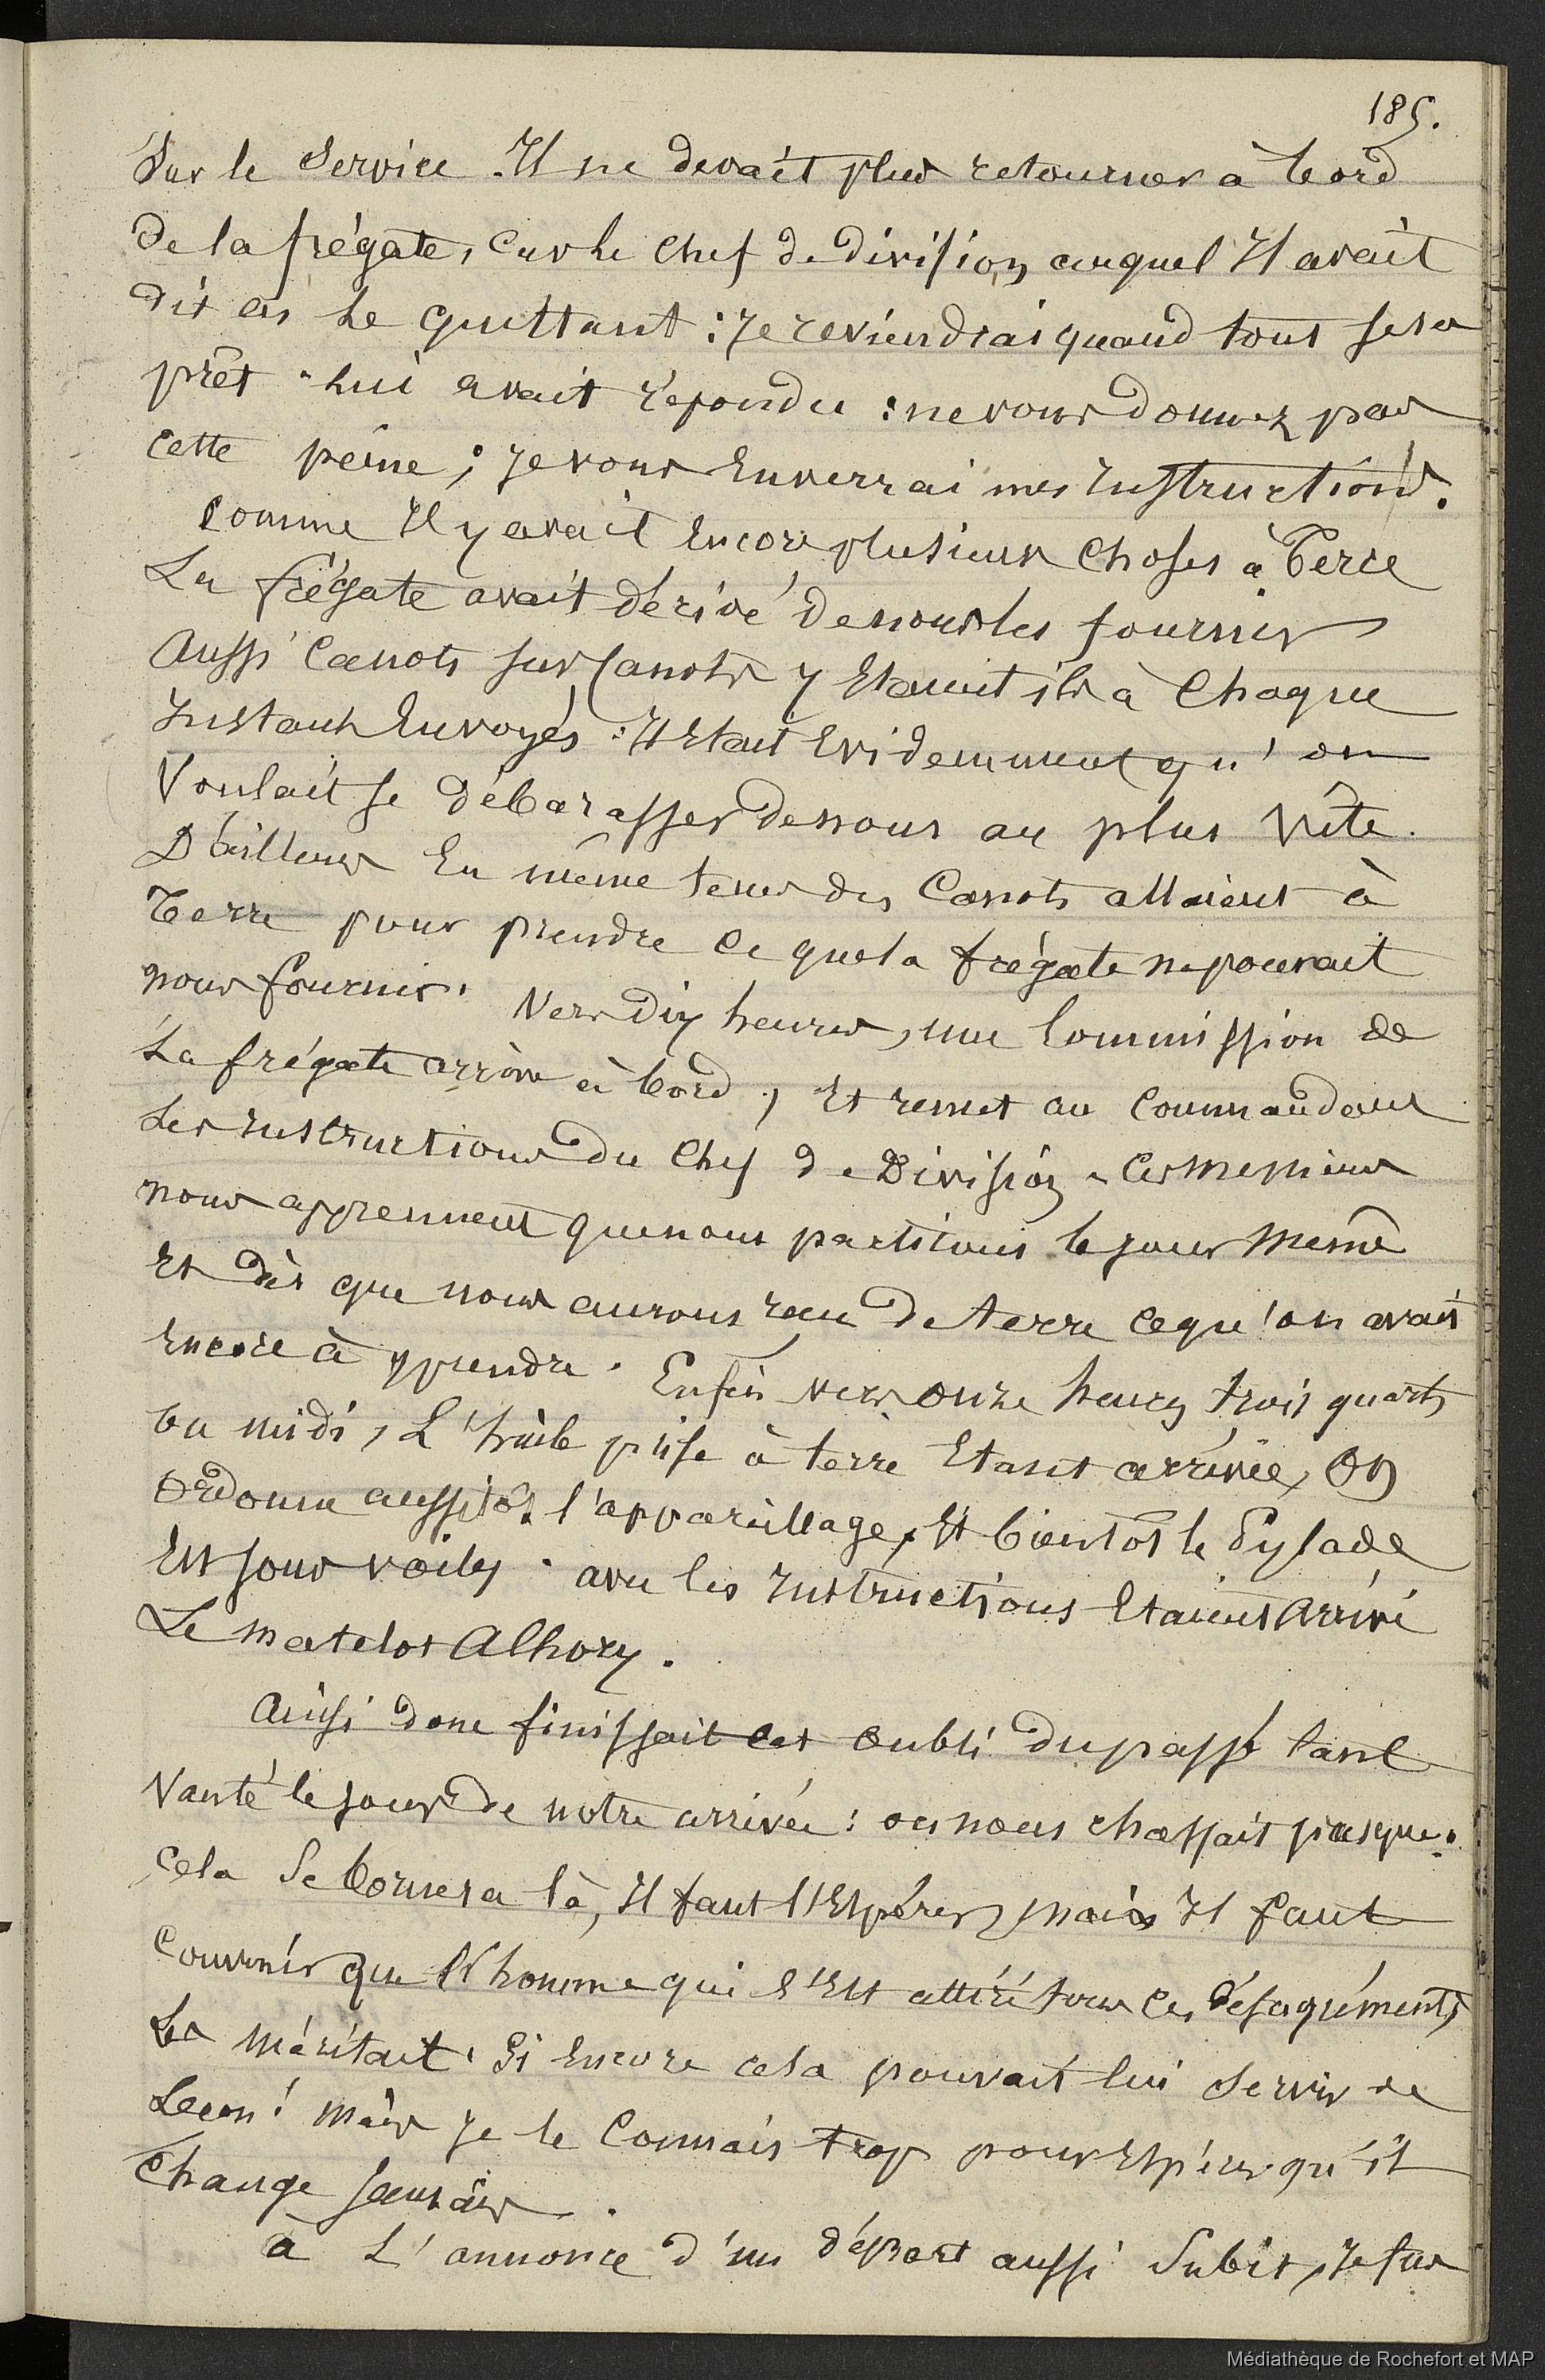 185.
Sur le Service. Il ne devait plus retourner à bord
de la frégate, Car le Chef de division auquel Il avait
dit en le quittant : Je reviendrai quand tout sera
prêt. lui avait répondu : ne vous donnez pas
cette peine ; Je vous Enverrai mes Instructions.
Comme Il y avait Encore plusieurs Choses à Terre
La frégate avait dérivé de nous les fournir
Aussi Canots sur Canots y Etaient ils à Chaque
Instant Envoyés : Il Etait Evidemment qu'on
Voulait se débarasser de nous au plus Vite.
D'ailleurs En même tems des Canots allaient à
Terre pour prendre Ce que la frégate ne pouvait
nous fournir. Vers dix heures, une Commission de
La frégate arrive à bord, Et remet au Commandant
Les Instructions du Chef de Division. Ces Messieurs
nous apprennent que nous partirons le jour Même
Et dès que nous aurons reçu de terre ce qu'on avait
Encore à y prendre. Enfin vers onze heures trois quarts
Ou midi, L'huile prise à terre Etant arrivée, On
Ordonne aussitôt l'appareillage, Et bientôt le Pylade
Est sous voiles. avec les Instructions Etaient Arrivé
Le matelot Alhory.
Ainsi donc finissait cet Oubli du passé tant
Vanté le jour de notre arrivée : on nous chassait presque.
Cela Se bornera là, Il faut l'Espérer, mais Il faut
Convenir que l'homme qui s'Est attiré tous Ces désagréments
Les Méritait. Si Encore cela pouvait lui Servir de
Leçon ! Mais Je le Connais trop pour Espérer qu'il
Change Jamais.
à L'annonce d'un départ aussi Subit, Je fus
Médiathèque de Rochefort et MAP